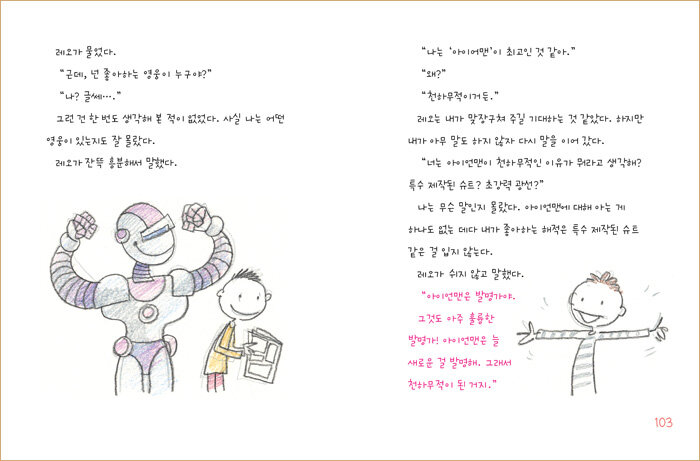 레오가 물었다.
“근데, 넌 좋아하는 영웅이 누구야?”
“나? 글쎄….”
그런 건 한 번도 생각해 본 적이 없었다. 사실 나는 어떤
영웅이 있는지도 잘 몰랐다.
레오가 잔뜩 흥분해서 말했다.
“나는 ‘아이어맨’이 최고인 것 같아.”
“왜?”
“천하무적이거든.”
레오는 내가 맞장구쳐 주길 기대하는 것 같았다. 하지만
내가 아무 말도 하지 않자 다시 말을 이어 갔다.
“너는 아이언맨이 천하무적인 이유가 뭐라고 생각해?
특수 제작된 슈트? 초강력 광선?”
나는 무슨 말인지 몰랐다. 아이언맨에 대해 아는 게
하나도 없는 데다 내가 좋아하는 해적은 특수 제작된 슈트
같은 걸 입지 않는다.
레오가 쉬지 않고 말했다.
“아이언맨은 발명가야.
그것도 아주 훌륭한
발명가! 아이언맨은 늘
새로운 걸 발명해. 그래서
천하무적이 된 거지.”
103